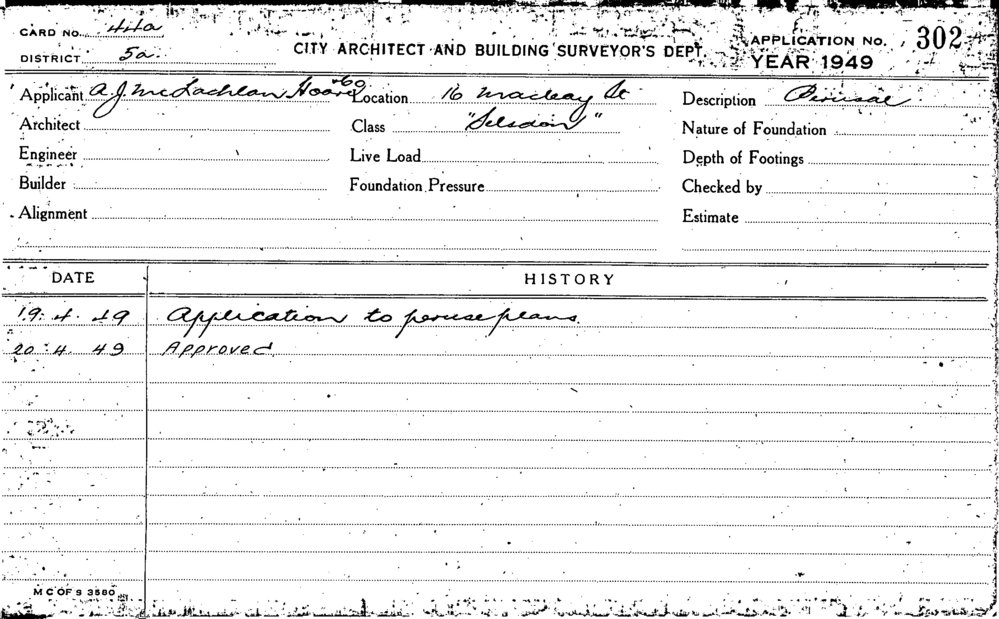 CARD NO. 44a
DISTRICT 5a.
CITY ARCHITECT AND BUILDING SURVEYOR'S DEPT.
APPLICATION NO. 302
YEAR 1949
Applicant A J McLachlan Hoare & Co Location 16 Macleay St Description Perusal
Architect Class "Selsdon" Nature of Foundation
Engineer Live Load Depth of Footings
Builder Foundation Pressure Checked by
Alignment Estimate
DATE HISTORY
19. 4. 49 Application to peruse plans.
20. 4. 49 Approved.
M C OF S 3580